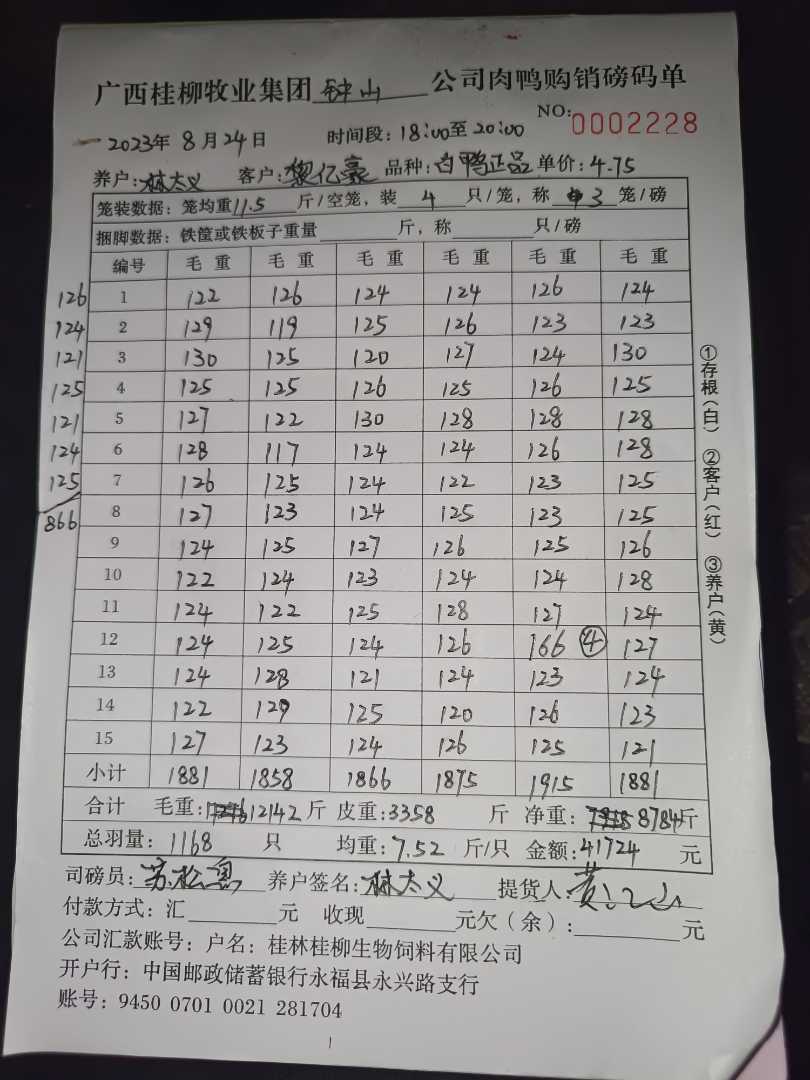 广西桂柳牧业集团钟山公司肉鸭购销磅码单
NO:0002228
2023年8月24日 时间段:18:00至20:00
养户:林太义 客户:黎亿豪 品种:白鸭正品 单价:4.75
笼装数据:笼均重11.5斤/空笼,装4只/笼,称3笼/磅
捆脚数据:铁筐或铁板子重量 斤,称 只/磅
编号 毛重 毛重 毛重 毛重 毛重 毛重
126 1 122 126 124 124 126 124
124 2 129 119 125 126 123 123
121 3 130 125 120 127 124 130
125 4 125 125 126 125 126 125
121 5 127 122 130 128 128 128
124 6 128 117 124 124 126 128
125 7 126 125 124 122 123 125
866 8 127 123 124 125 123 125
9 124 125 127 126 125 126
10 122 124 123 124 124 128
11 124 122 125 128 127 124
12 124 125 124 126 166 ④ 127
13 124 128 121 124 123 124
14 122 129 125 120 126 123
15 127 123 124 126 125 121
小计 1881 1858 1866 1875 1915 1881
合计 毛重:12142斤 皮重:3358斤 净重:8784斤
总羽量:1168只 均重:7.52斤/只 金额:41724元
司磅员: 养户签名:林太义 提货人:
付款方式:汇 元 收现 元欠(余): 元
公司汇款账号:户名:桂林桂柳生物饲料有限公司
开户行:中国邮政储蓄银行永福县永兴路支行
账号:9450 0701 0021 281704
①存根(白) ②客户(红) ③养户(黄)